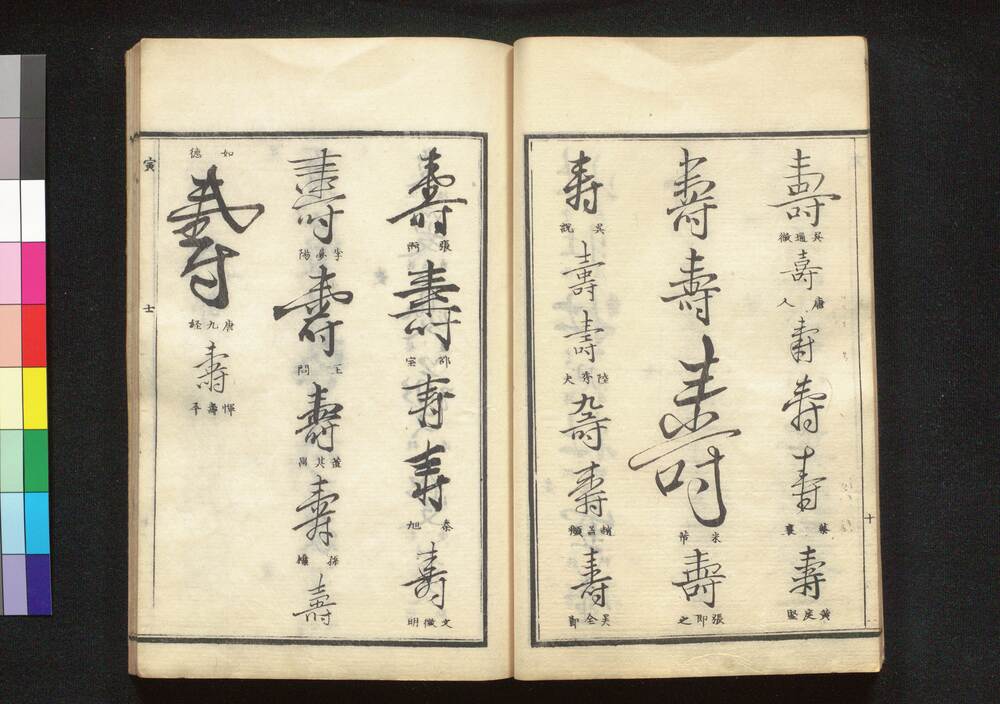 壽
吳通微
壽
唐人
壽
壽
壽
蔡襄
壽
黃庭堅
十
壽
壽
壽
米芾
壽
張即之
壽
吳說
壽
壽
陸秀夫
壽
壽
趙孟頫
壽
吴全節
壽
張
壽
邵宝
壽
壽
秦旭
壽
文徵明
壽
李夢陽
壽
王問
壽
董其昌
壽
孫
壽
如德
壽
唐九經
壽
惲壽平
寅
士